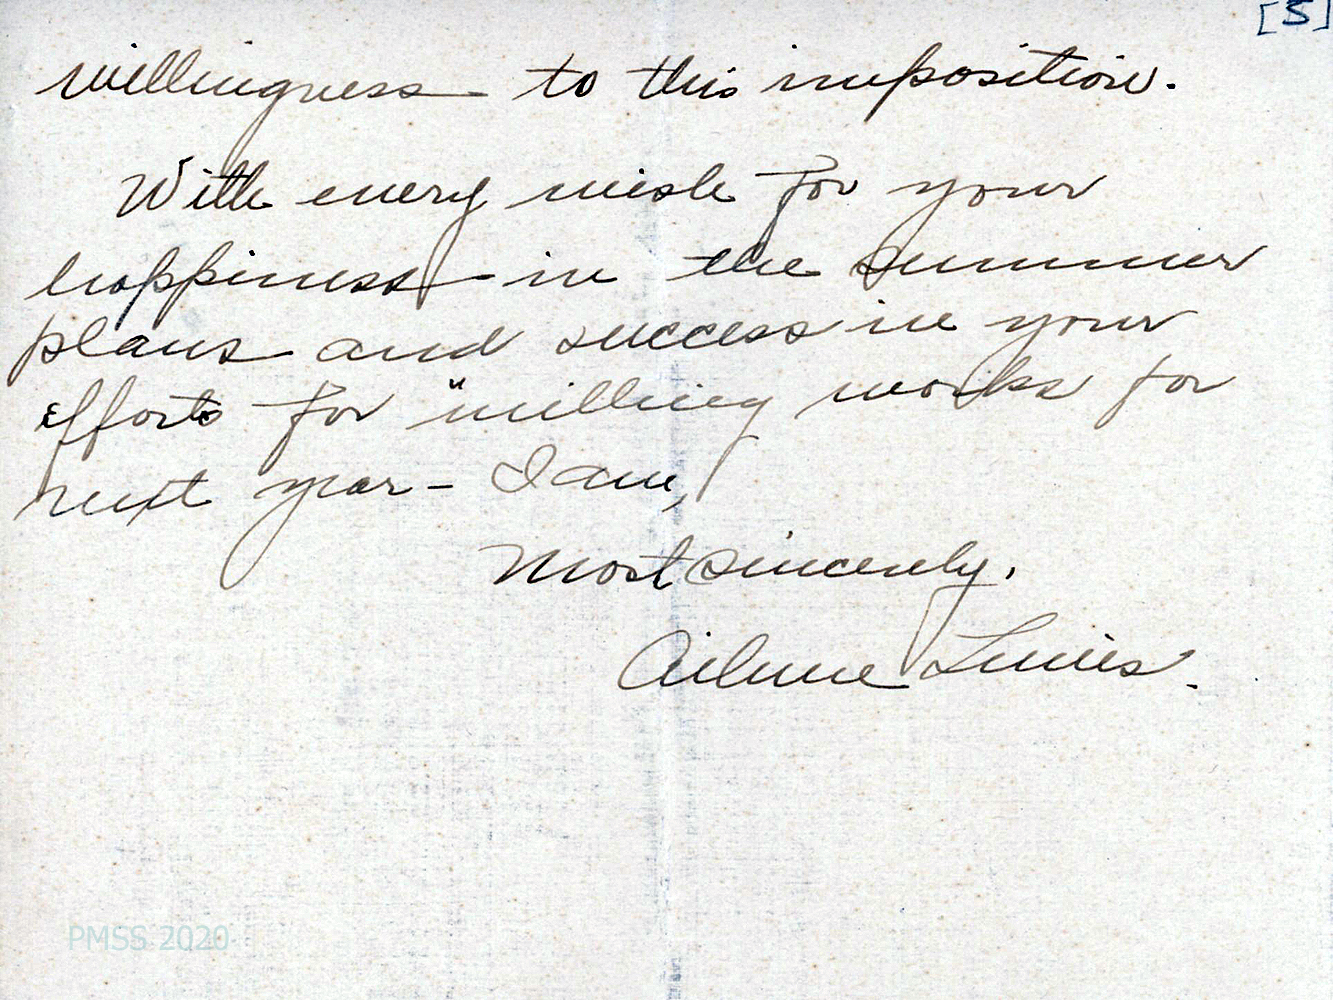 [5]
willingness to this imposition.
With every wish for your
happiness in the summer
plans and success in your
efforts for "willing works for
next year - I am,
Most sincerely,
PMSS 2020